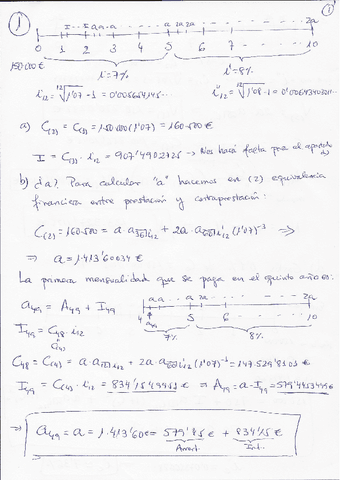 1
1
I I aa a a 2a 2a 2a
0 1 2 3 4 5 6 7 10
150.000 €
i=7% i'=8%
i₁₂ = ¹²√1'07 - 1 = 0'005654145... i'₁₂ = ¹²√1'08 - 1 = 0'00643403...
a) C₍₂₎ = C₍₁₎ = 150.000 (1'07) = 160.500 €
I = C₍₁₎ · i₁₂ = 907'4902725 → Nos hará falta para el apartado
b) ¿a? Para calcular "a" hacemos en (2) equivalencia
financiera entre prestación y contraprestación:
C₍₂₎ = 160.500 = a · a₃₆ i₁₂ + 2a · a₆₀ i'₁₂ (1'07)⁻³ ⇒
⇒ a = 1.413'60034 €
La primera mensualidad que se paga en el quinto año es:
a₄₉ = A₄₉ + I₄₉
a a 2a 2a
4 5 6 10
7% 8%
I₄₉ = C₄₈ · i₁₂
C₄₈ = C₍₄₎ = a · a₁₂ i₁₂ + 2a · a₆₀ i'₁₂ (1'07)⁻¹ = 147.529'8101 €
I₄₉ = C₍₄₎ · i₁₂ = 834'1549955 € ⇒ A₄₉ = a - I₄₉ = 579'44534496
⇒ a₄₉ = a = 1.413'60 € = 579'45 € + 834'15 €
Amort. Int.